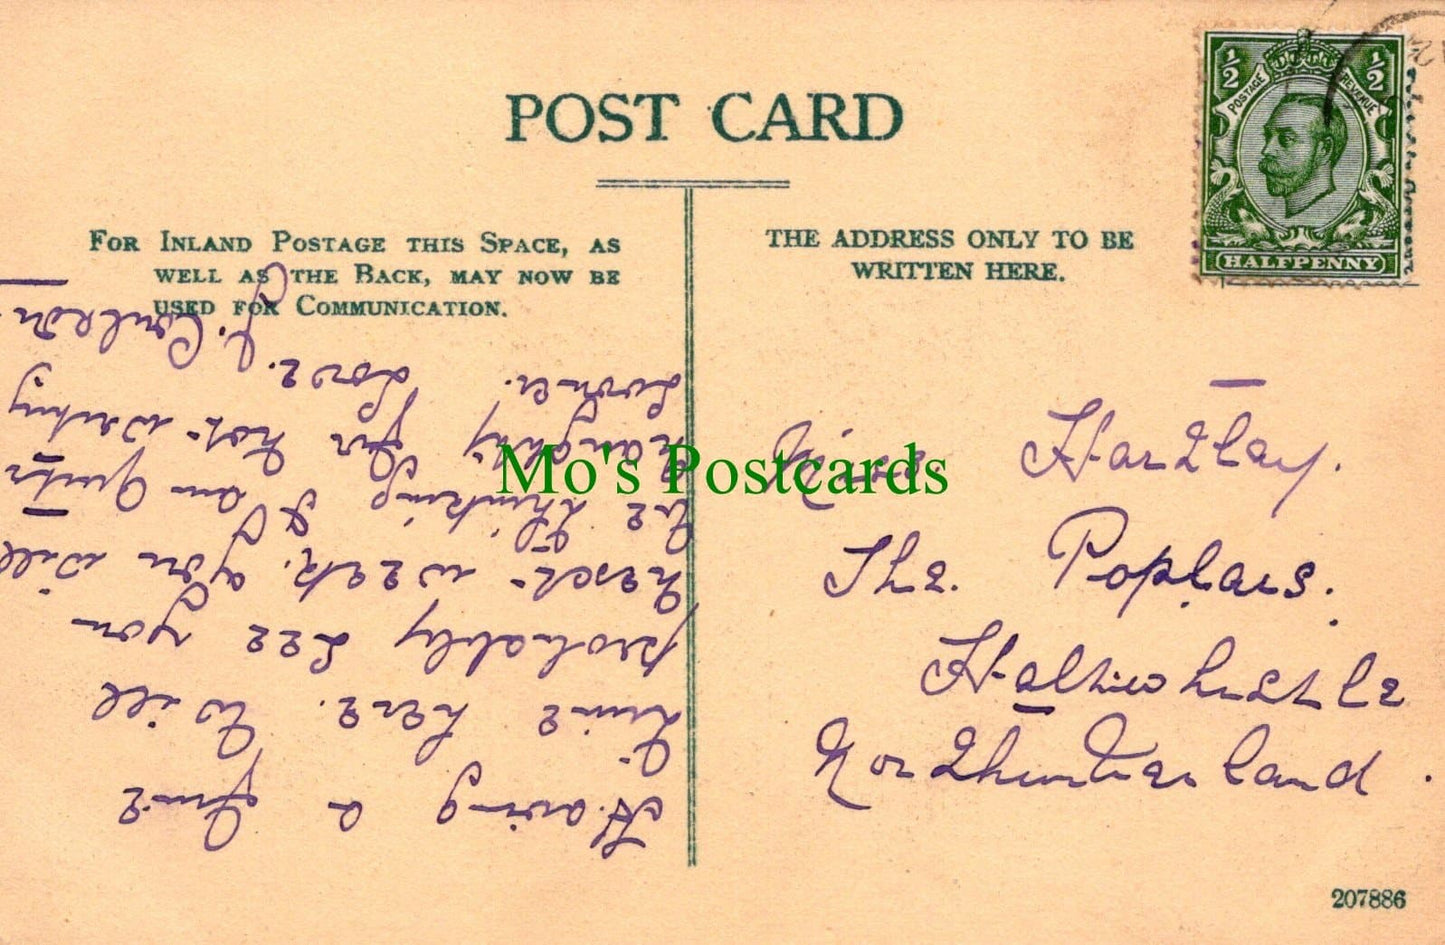 POST CARD
FOR INLAND POSTAGE THIS SPACE, AS
WELL AS THE BACK, MAY NOW BE
USED FOR COMMUNICATION.
THE ADDRESS ONLY TO BE
WRITTEN HERE.
½ ½
POSTAGE REVENUE
HALFPENNY
Having a fine
time here. Will
probably see you
next week. You will
be thinking I am quite
naughty for not writing
sooner. Love.
Hartley.
The. Poplars.
Haltwhistle
Northumberland.
Mo's Postcards
207886